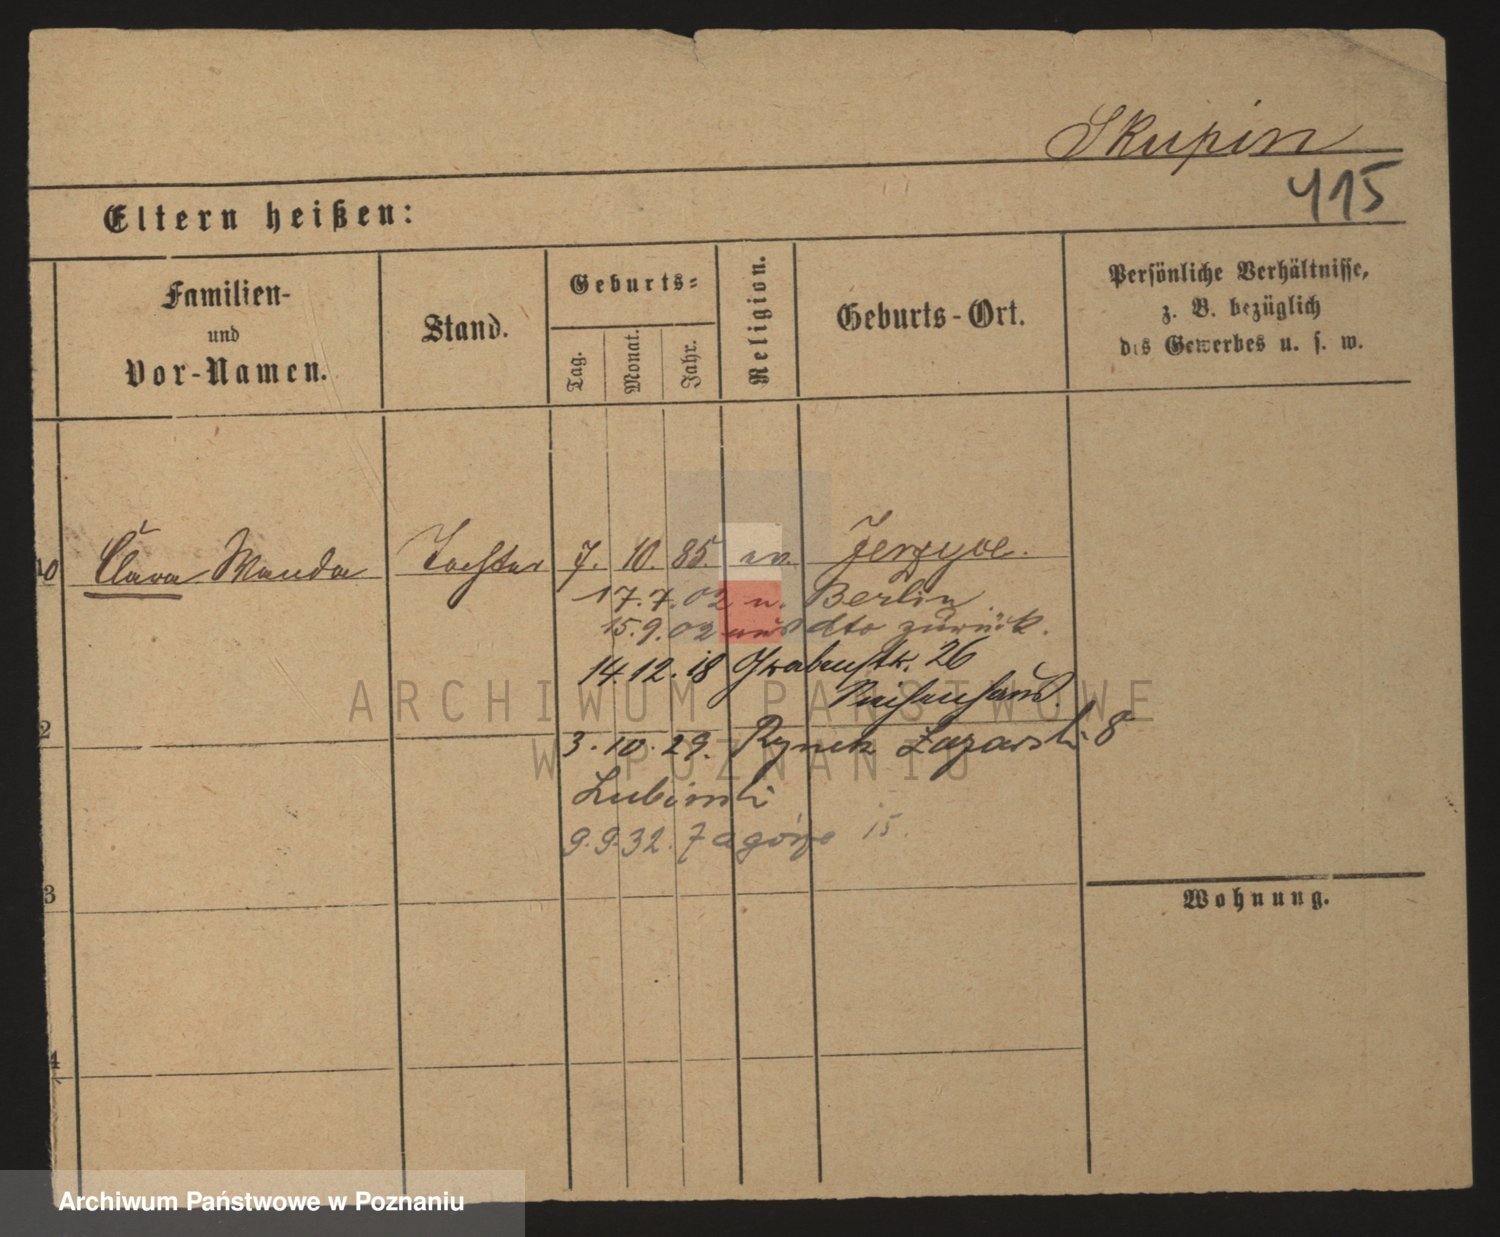 Skupin
415
Eltern heißen:
Familien-
und
Vor-Namen.
Stand.
Geburts-
Tag.
Monat.
Jahr.
Religion.
Geburts-Ort.
Persönliche Verhältnisse,
z. B. bezüglich
des Gewerbes u. s. w.
10 Clara Wanda Tochter 7. 10. 85. ev. Jerzyce.
17.7.02 n. Berlin
15.9.02 aus dto zurück.
14.12.18 Grabenstr. 26
2
3.10.29. Rynek Łazarski 8
9.9.32. Zagórze 15.
3
Wohnung.
4
ARCHIWUM PAŃSTWOWE
W POZNANIU
Archiwum Państwowe w Poznaniu